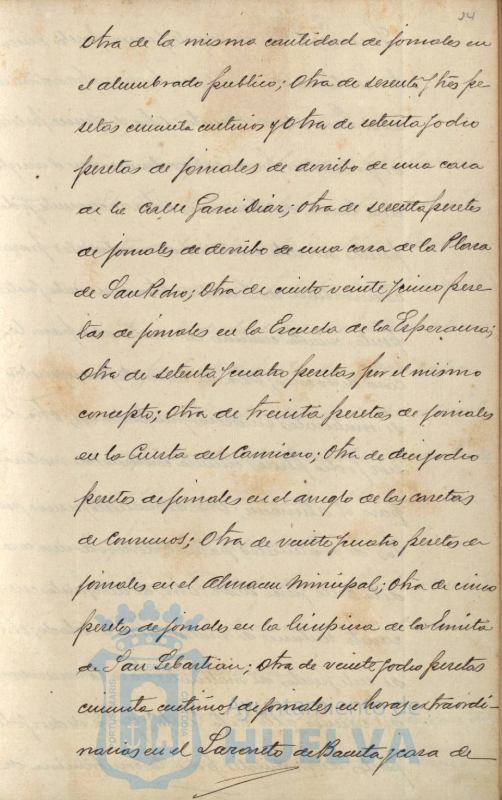 24
otra de la misma cantidad de jornales en
el alumbrado público; Otra de sesenta y tres pe-
setas cincuenta centimos y Otra de setenta y ocho
pesetas de jornales de derribo de una casa
de la Calle Garci Diaz; Otra de sesenta pesetas
de jornales de derribo de una casa de la Plaza
de San Pedro; Otra de ciento veinte y cinco pese-
tas de jornales en la Escuela de la Esperanza;
Otra de setenta y cuatro pesetas por el mismo
concepto; Otra de treinta pesetas de jornales
en la Cuesta del Carnicero; Otra de diez y ocho
pesetas de jornales en el arreglo de las casetas
de Consumos; Otra de veinte y cuatro pesetas de
jornales en el Almacen Municipal; Otra de cinco
pesetas de jornales en la limpieza de la Ermita
de San Sebastian; Otra de veinte y ocho pesetas
cincuenta centimos de jornales en horas extraordi-
narias en el Lazareto de Bacuta y casa de
Ayuntamiento de
HUELVA